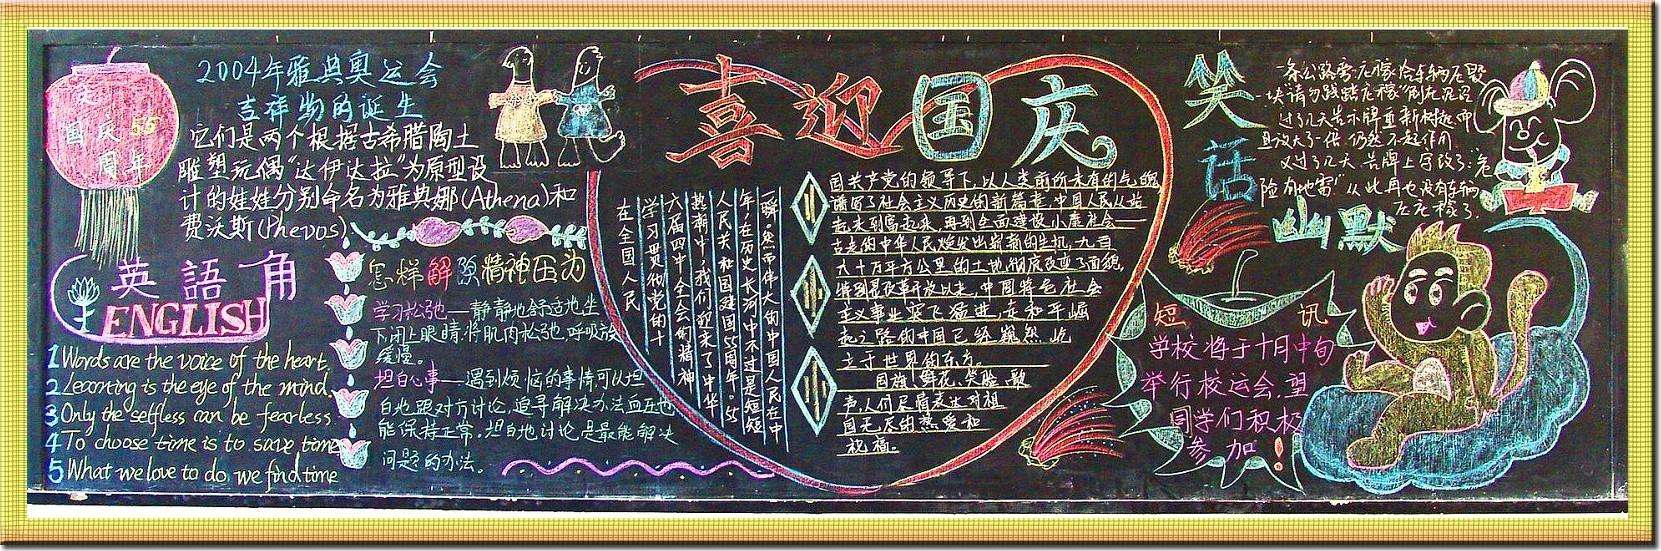 庆
国庆55
周年
2004年雅典奥运会
吉祥物的诞生
它们是两个根据古希腊陶土
雕塑玩偶“达伊达拉”为原型设
计的娃娃分别命名为雅典娜(Athena)和
费沃斯(Phevos)
英語角
ENGLISH
1 Words are the voice of the heart.
2 Learning is the eye of the mind.
3 Only the selfless can be fearless
4 To choose time is to save time
5 What we love to do we find time
怎样解除精神压力
学习松弛——静静地舒适地坐
下闭上眼睛,将肌肉松弛,呼吸放
缓慢。
坦白心事——遇到烦恼的事情可以坦
白地跟对方讨论,追寻解决办法血压也
能保持正常。坦白地讨论是最能解决
问题的办法。
喜迎国庆
瞬。然而伟大的中国人民在中
年,在历史长河中不过是短短
人民共和国建国55周年。55
热潮中,我们迎来了中华
六届四中全会的精神
学习贯彻党的十
在全国人民
国共产党的领导下,以人类前所未有的气魄
谱写了社会主义历史的新篇章,中国人民从站
起来到富起来,再到全面建设小康社会——
古老的中华人民焕发出崭新的生机,九百
六十万平方公里的土地彻底改变了面貌,
特别是改革开放以来,中国特色社会
主义事业突飞猛进,在和平崛
起之路的中国已经巍然屹
立于世界的东方。
国旗、鲜花、笑脸、歌
声,人们尽情表达对祖
国无尽的热爱和
祝福。
笑话
幽默
一条公路旁,庄稼给车辆压毁
一块请勿践踏庄稼
过了几天告示牌重新树起,
且放大了一倍,仍然不起作用
又过了几天,告牌上字改了:“危
险,有地雷!”从此再也没有车辆
压庄稼了。
短讯
学校将于十月中旬
举行校运会,望
同学们积极
参加!